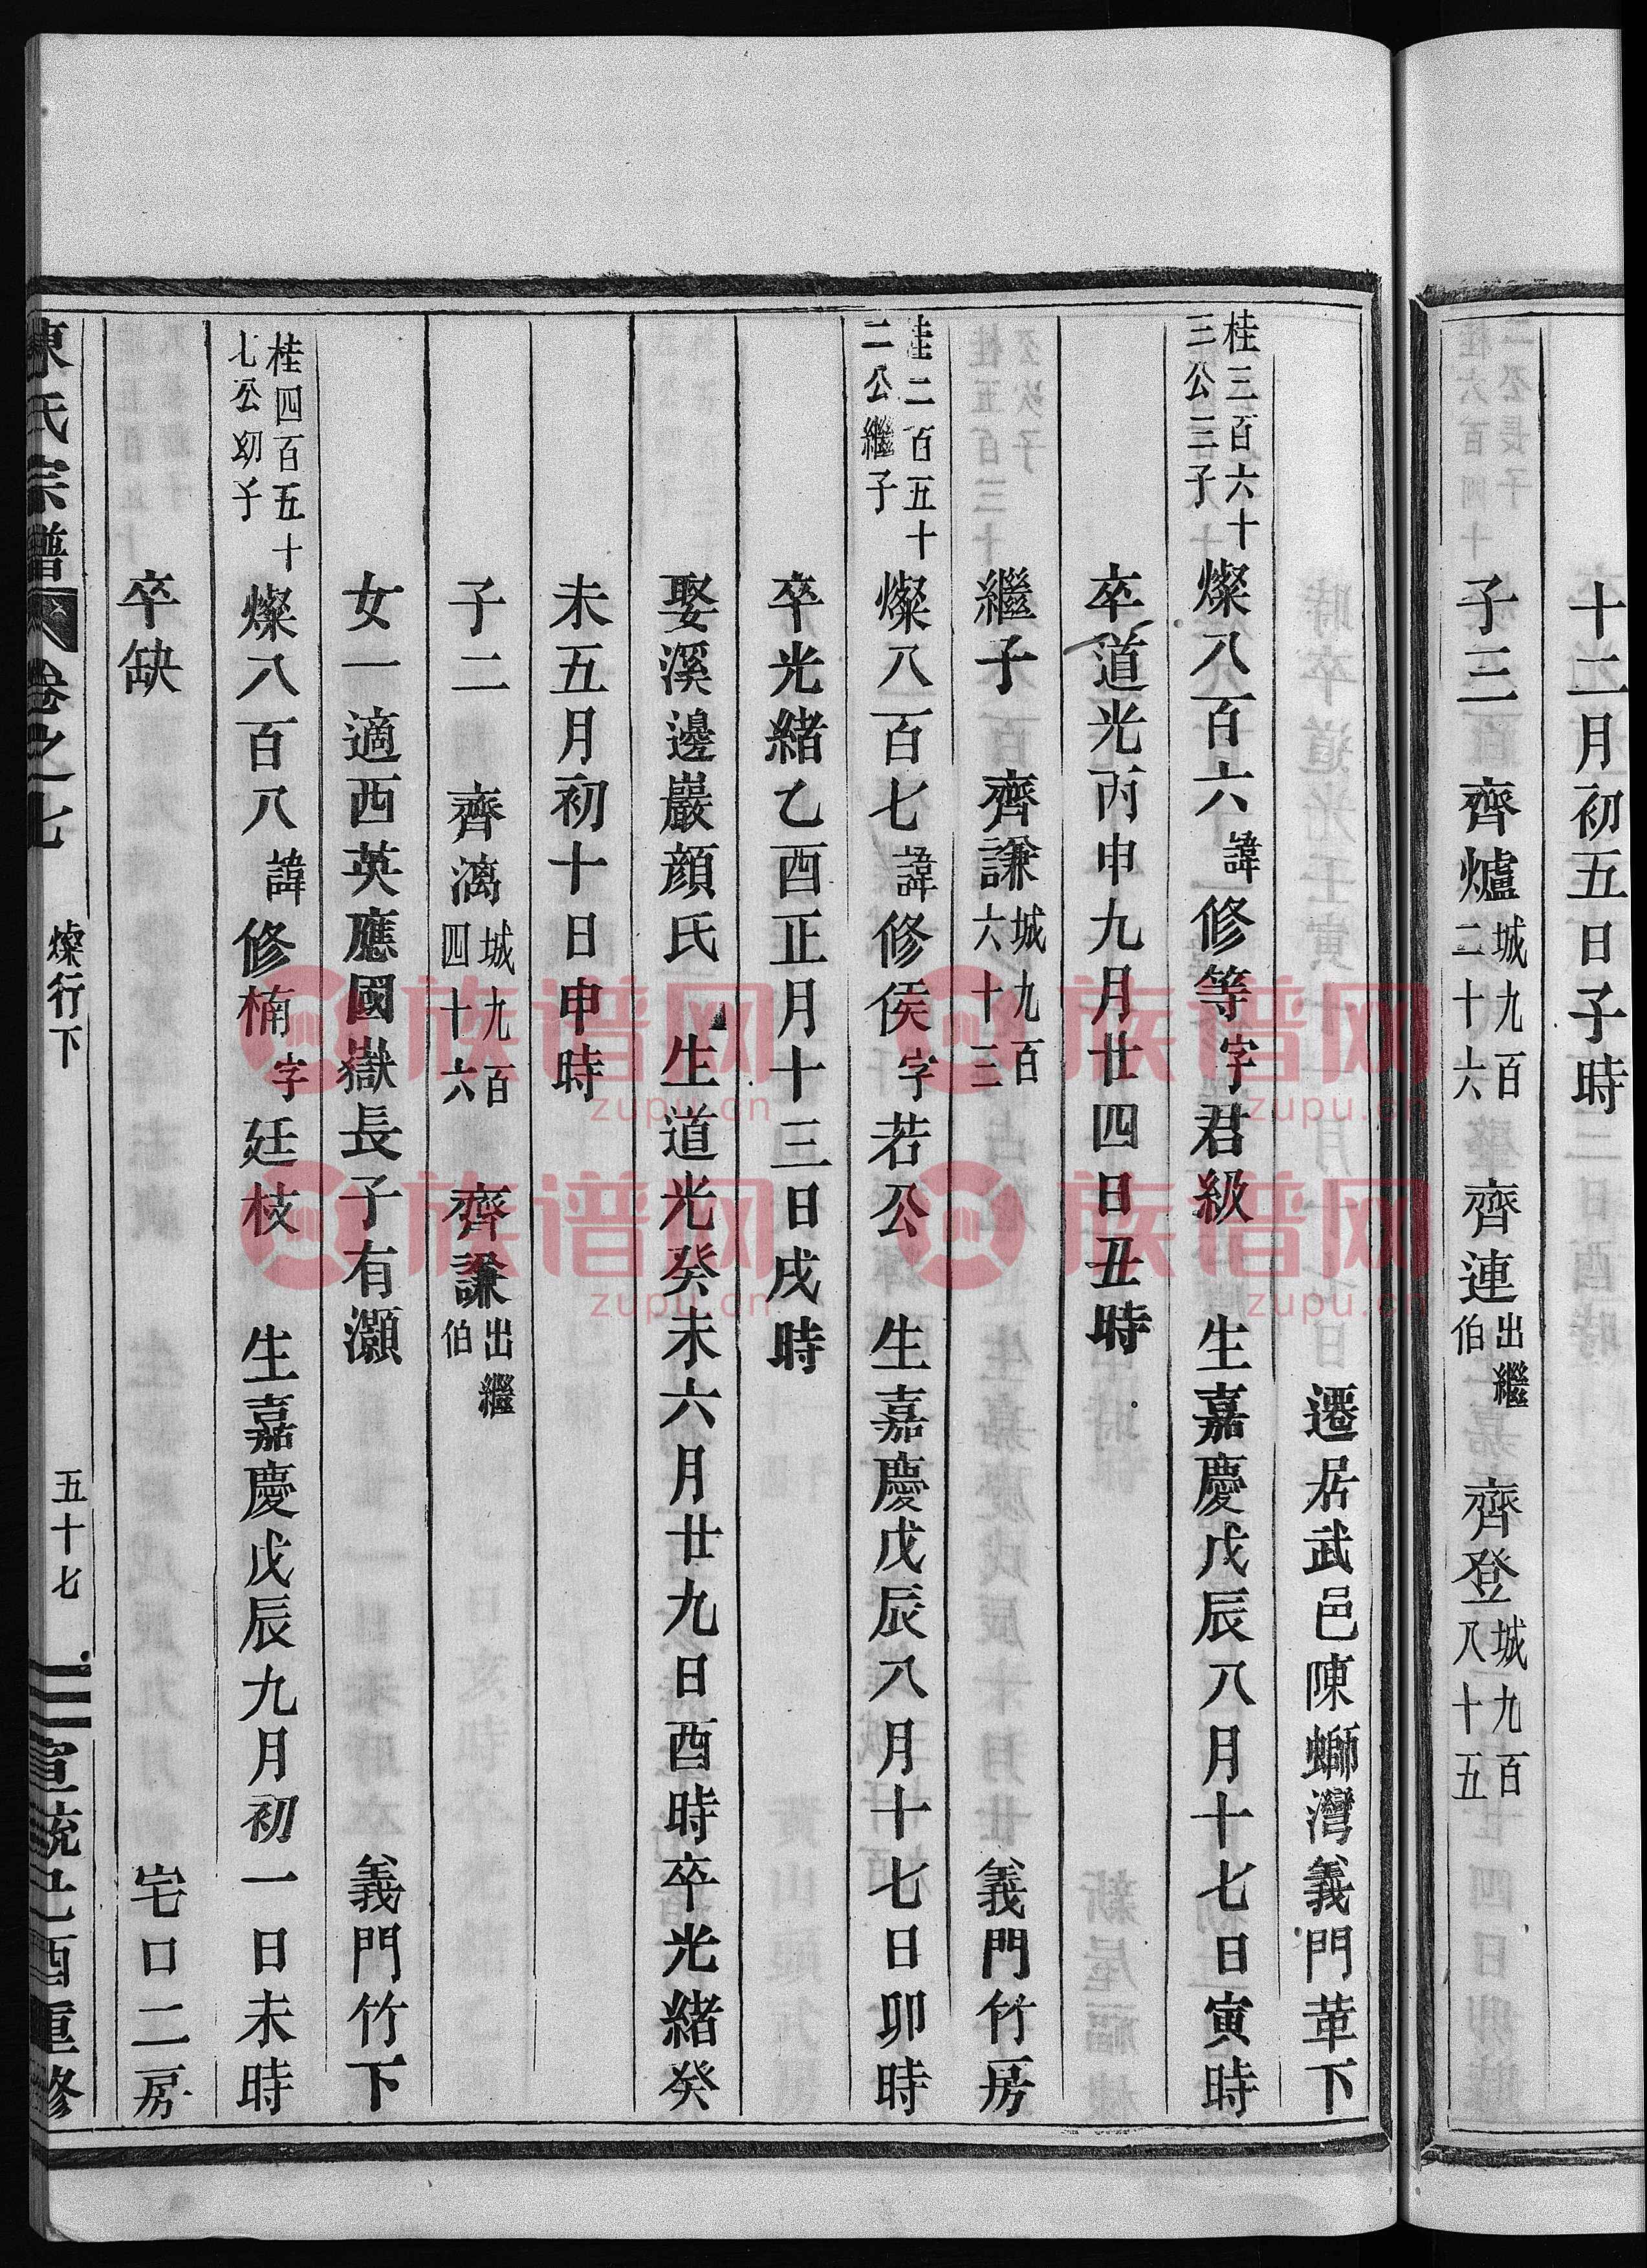 十二月初五日子時
子三 齊爐城九百二十六 齊連出繼伯 齊登城九百八十五
遷居武邑陳螄灣義門葦下
桂三百六十三公三子 燦八百六諱修等字君級 生嘉慶戊辰八月十七日寅時
卒道光丙申九月廿四日丑時
繼子 齊謙城九百六十三 義門竹房
桂二百五十二公繼子 燦八百七諱修侯字若公 生嘉慶戊辰八月十七日卯時
卒光緒乙酉正月十三日戌時
娶溪邊嚴顏氏 生道光癸未六月廿九日酉時卒光緒癸
未五月初十日申時
子二 齊漓城九百四十六 齊謙出繼伯
女一適西英應國嶽長子有灝 義門竹下
桂四百五十七公幼子 燦八百八諱修楠字廷枝 生嘉慶戊辰九月初一日未時
卒缺 宅口二房
陳氏宗譜 卷之七 燦行下 五十七 宣統己酉重修
族谱网 zupu.cn
族谱网 zupu.cn
族谱网 zupu.cn
族谱网 zupu.cn